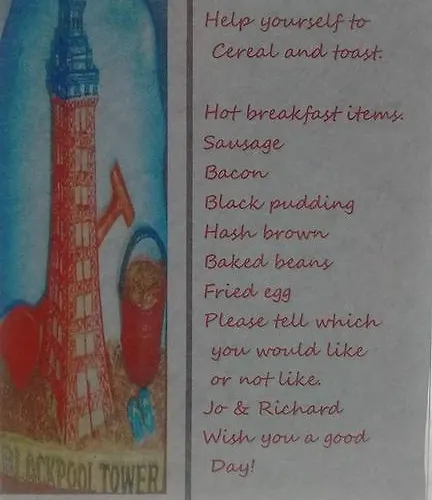 Help yourself to
Cereal and toast.
Hot breakfast items.
Sausage
Bacon
Black pudding
Hash brown
Baked beans
Fried egg
Please tell which
you would like
or not like.
Jo & Richard
Wish you a good
Day!
BLACKPOOL TOWER